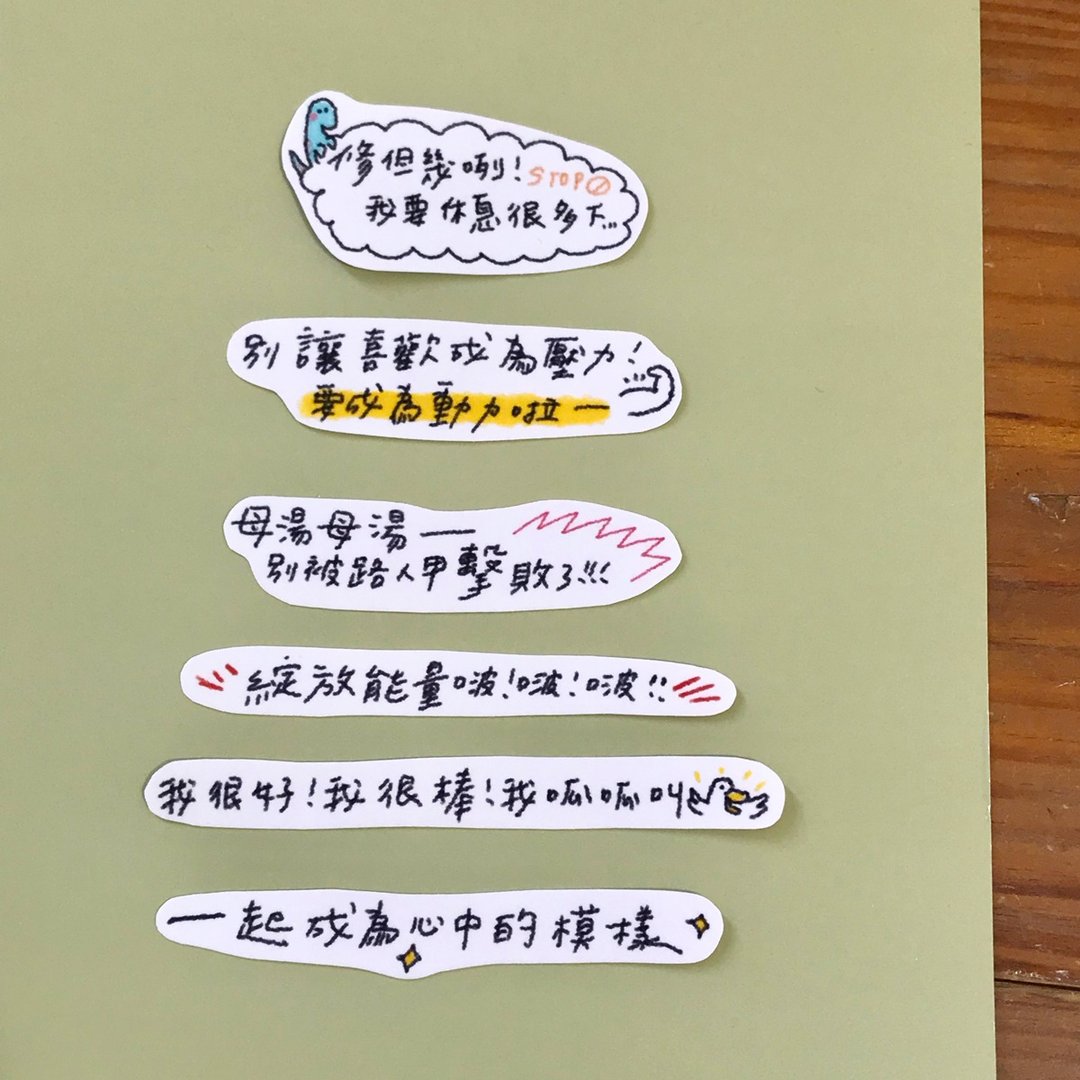 修但幾咧！STOP
我要休息很多下...
別讓喜歡成為壓力！
要成為動力啦一
母湯母湯一
別被路人甲擊敗了!!!
綻放能量啵！啵！啵！！
我很好！我很棒！我呱呱叫
一起成為心中的模樣